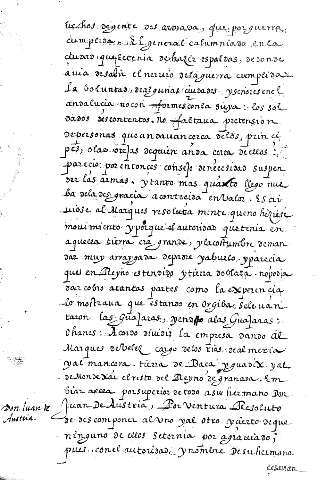 hechos de gente desarmada, que por guerra
cumplida. El general calumniado, en la
ciudad que tenia de hazer espaldas, de donde
avia de salir el nervio de la guerra cumplida
la voluntad, de algunas ciudades y señores en el
andalucia no con formes con la suya: los sol
dados descontentos. No faltava pretension
de personas que andavan cerca dellos, prin ci
pes, o la orejas de quien anda cerca de ellos:
parecio por entonces consejo de necesidad suspen
der las armas. y tanto mas quanto llego nue
ba de la desgracia acontecida en Valor. Es cri
viose al Marques resoluta mente que no hiziese
movimiento y porque el autoridad que tenia en
aquella tierra era grande, y la costumbre de man
dar muy arraygada de padre y abuelo, y parecia
que en Reyno estendido y tierra doblaza. no podia
dar cobro a tantas partes como la experiencia
lo mostrava que estando en Orgiba. Se levan
taron las Guajaras, yendo a las Guajaras:
Ohanes: Acordo dividir la empresa dando al
Marques de Velez cargo de los rios de almeria
y almançora. tierra de Baça y guadix. y al
de Mondexar el resto del Reyno de granada. Em
biar a ella por superior de todo a su hermano Don
Juan De Austria, Por ventura Resoluto
de descomponer al Uno y al otro y cierto de que
ninguno de ellos se ternia por agraviado;
pues. con el autoridad y nombre de su hermano.
cesavan
Don Juan de
Austria.